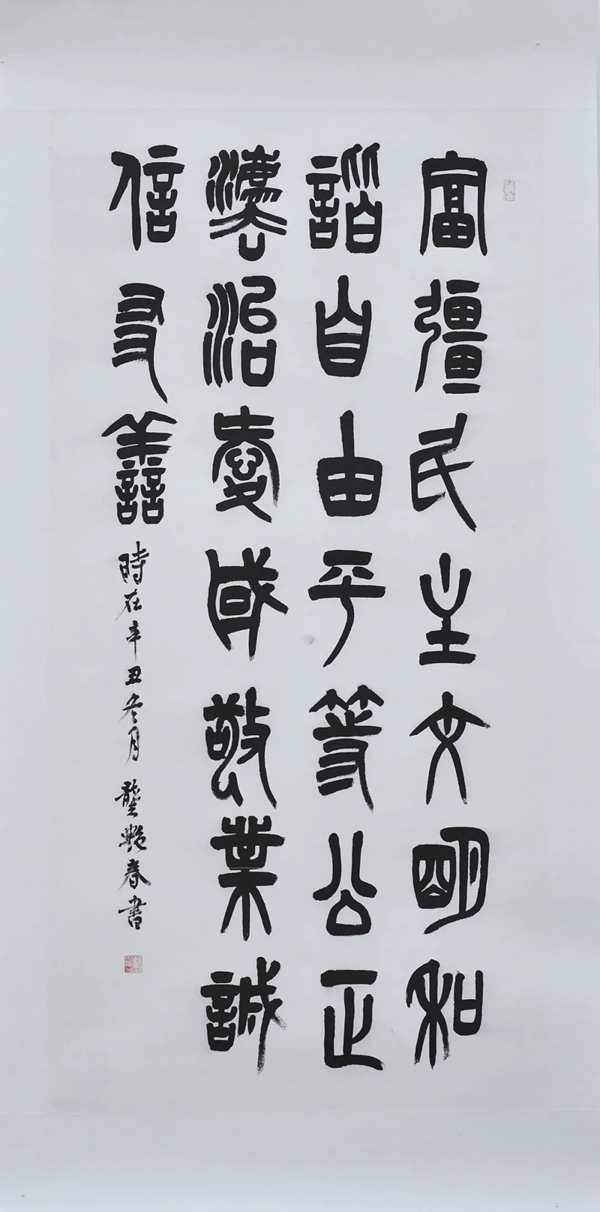 富彊民主文明和
諧自由平等公正
灋治愛國敬業誠
信友善
時在辛丑冬月龔艷春書